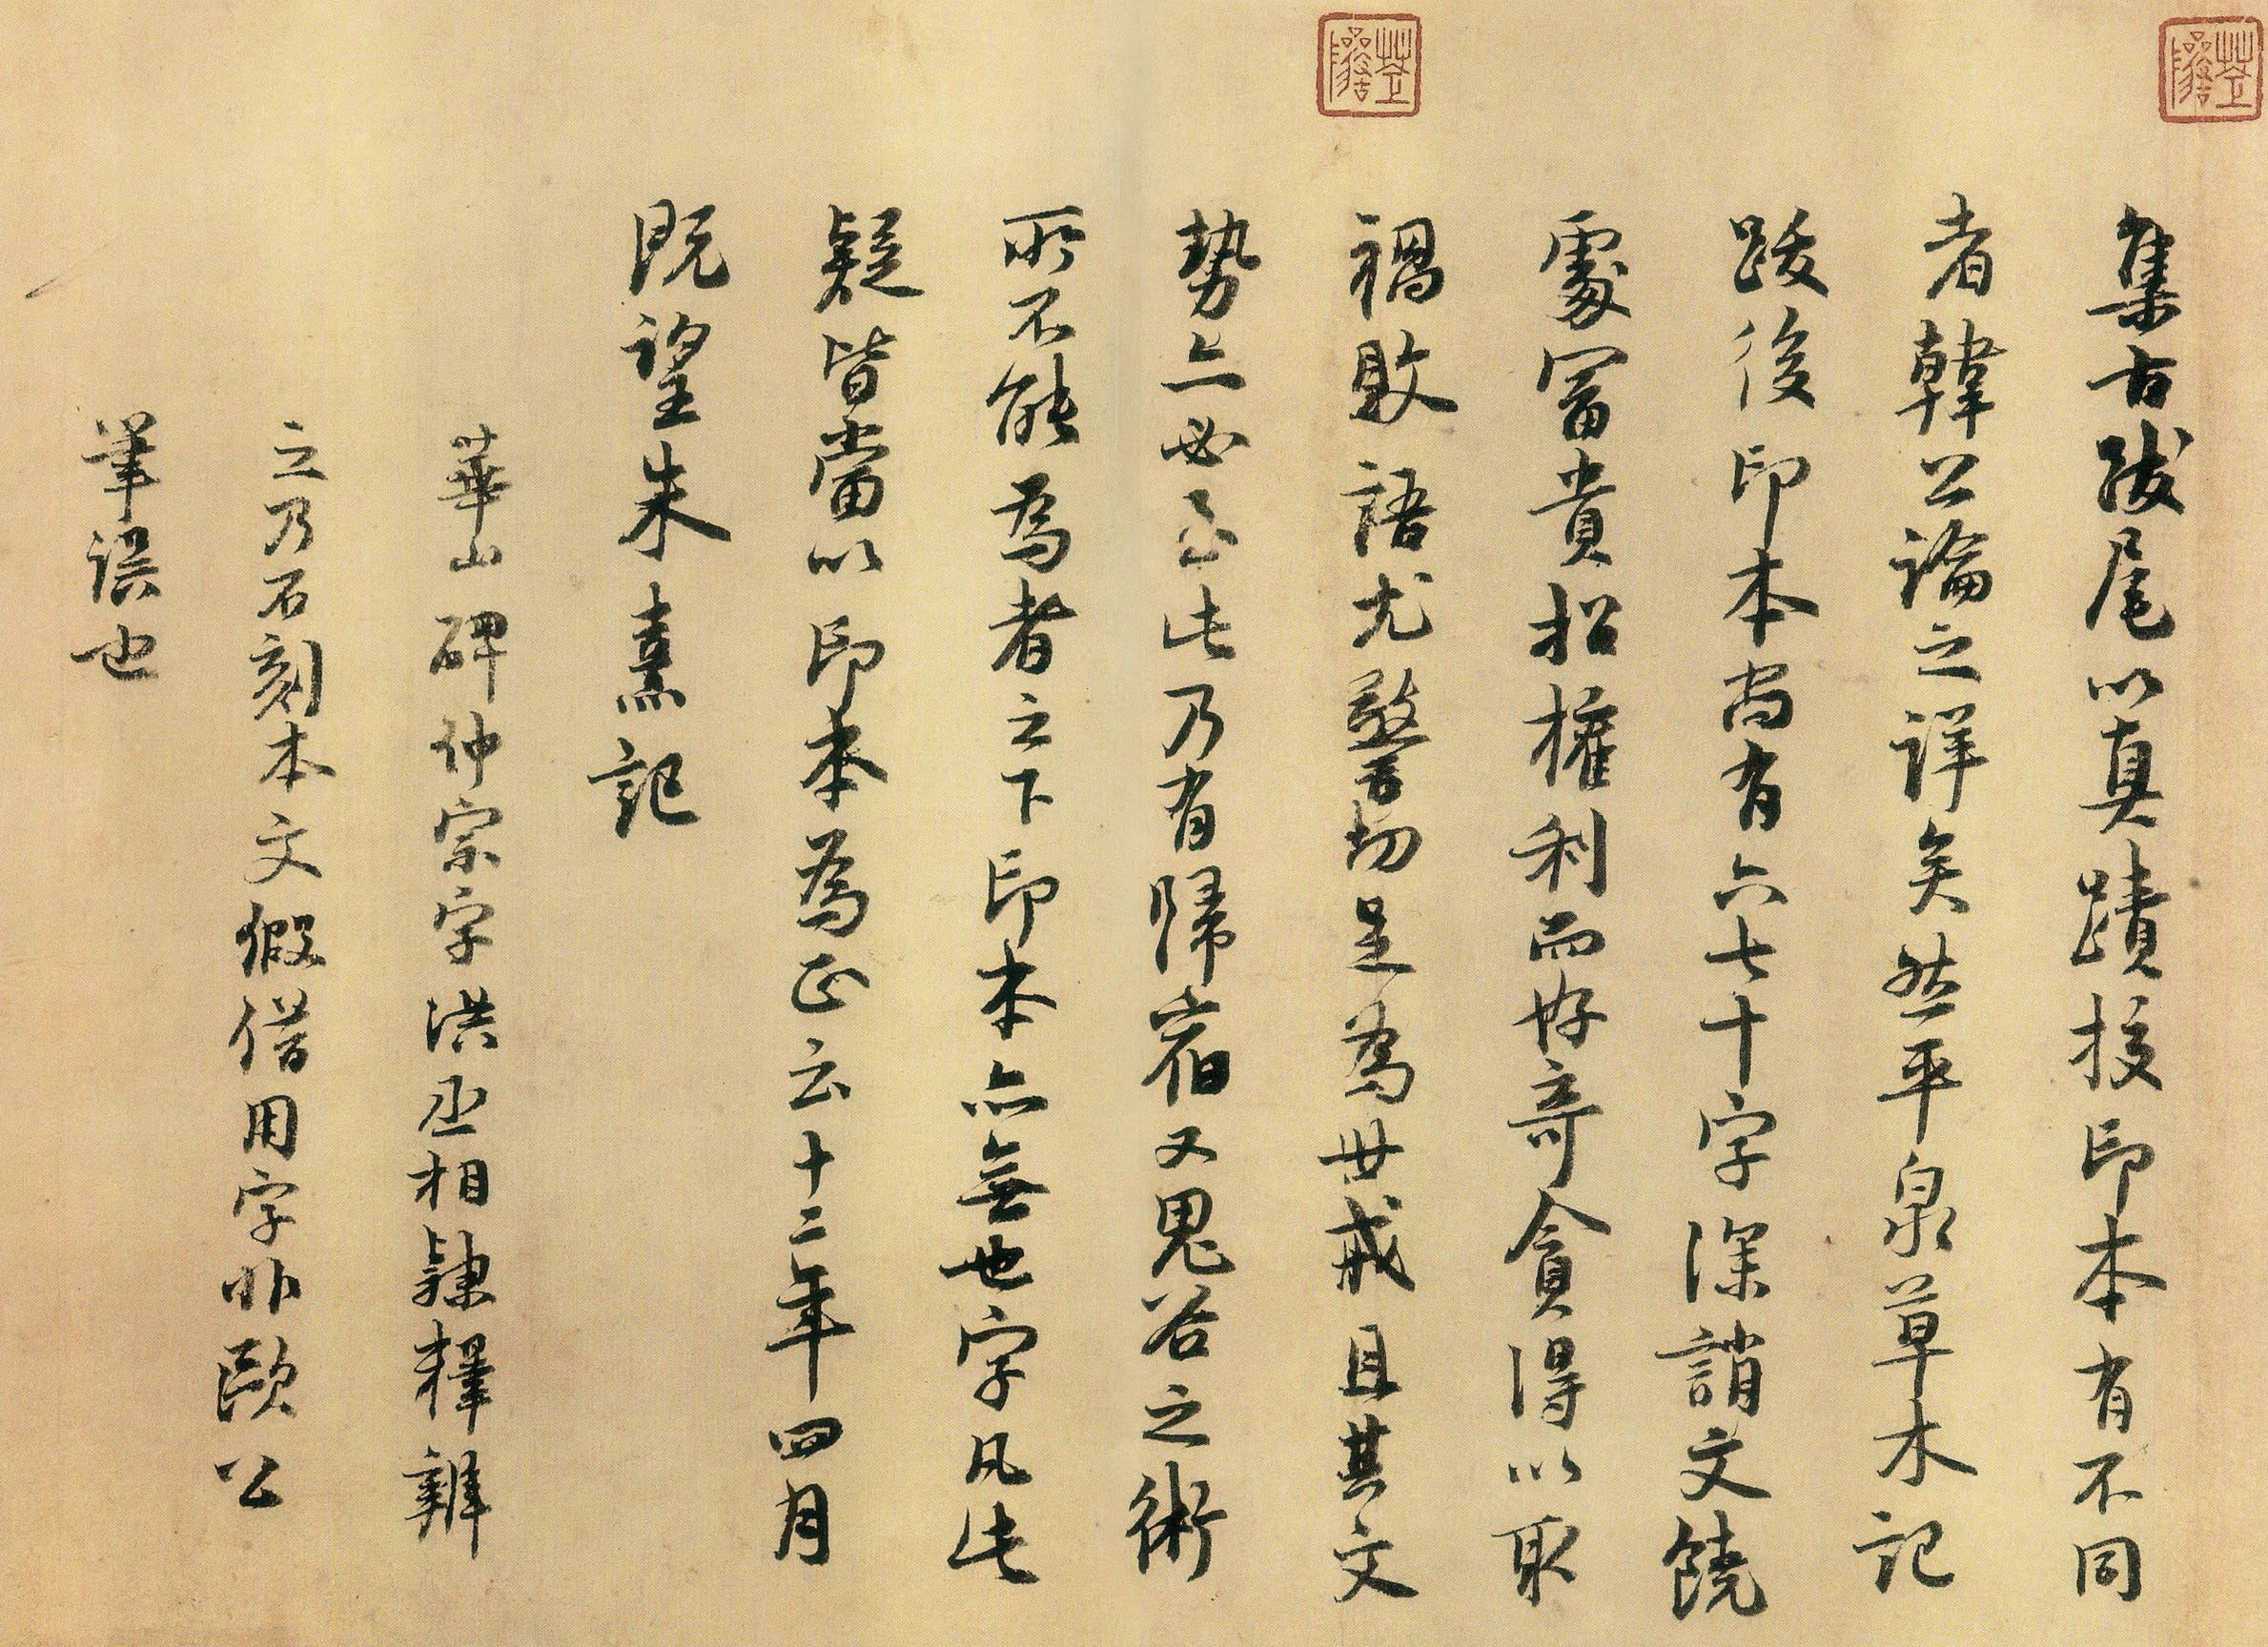 集古跋尾以真蹟挍印本有不同
者韓公論之詳矣然平泉草木記
跋後印本尚有六七十字深誚文饒
處冨貴招權利而好竒貪得以取
禍敗語尤警切足為世戒且其文
勢亦必至此乃有歸宿又鬼谷之術
所不能為者之下印本亦無也字凡此
疑皆當以印本為正云十二年四月
既望朱熹記
華山碑仲宗字洪丞相隷釋辨
之乃石刻本文假借用字非歐公
筆誤也